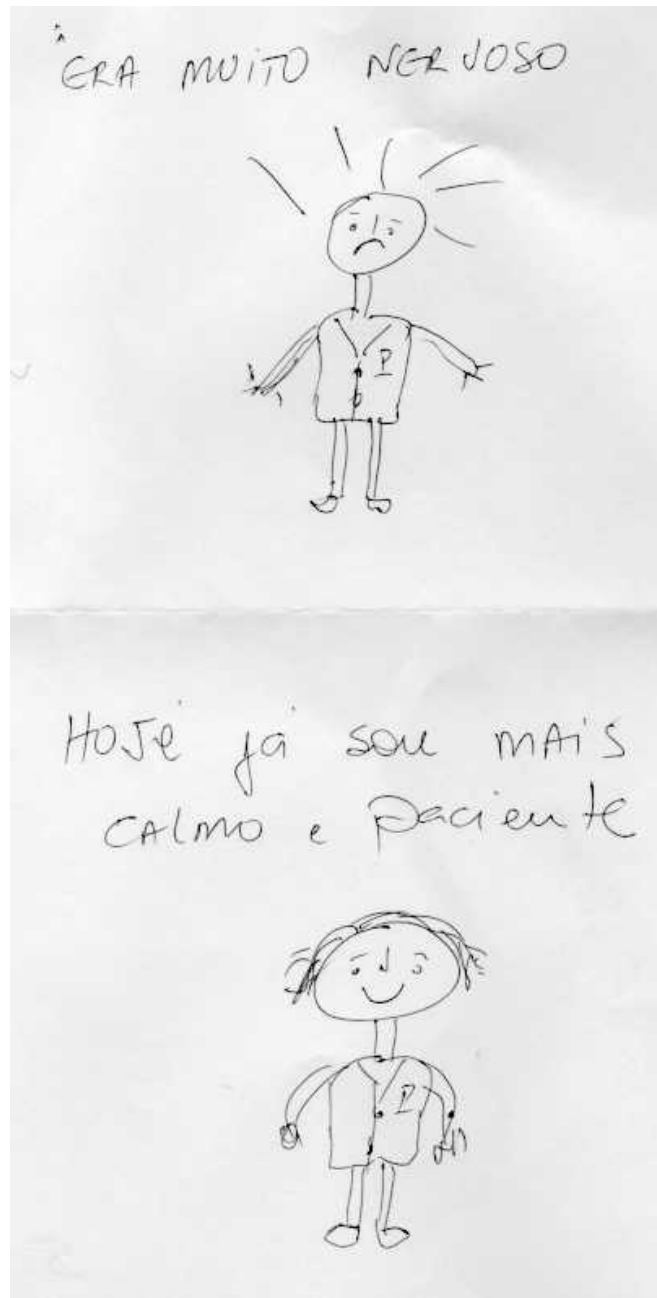 ERA MUITO NERVOSO
P
HOJE já sou MAIS
CALMO e paciente
P